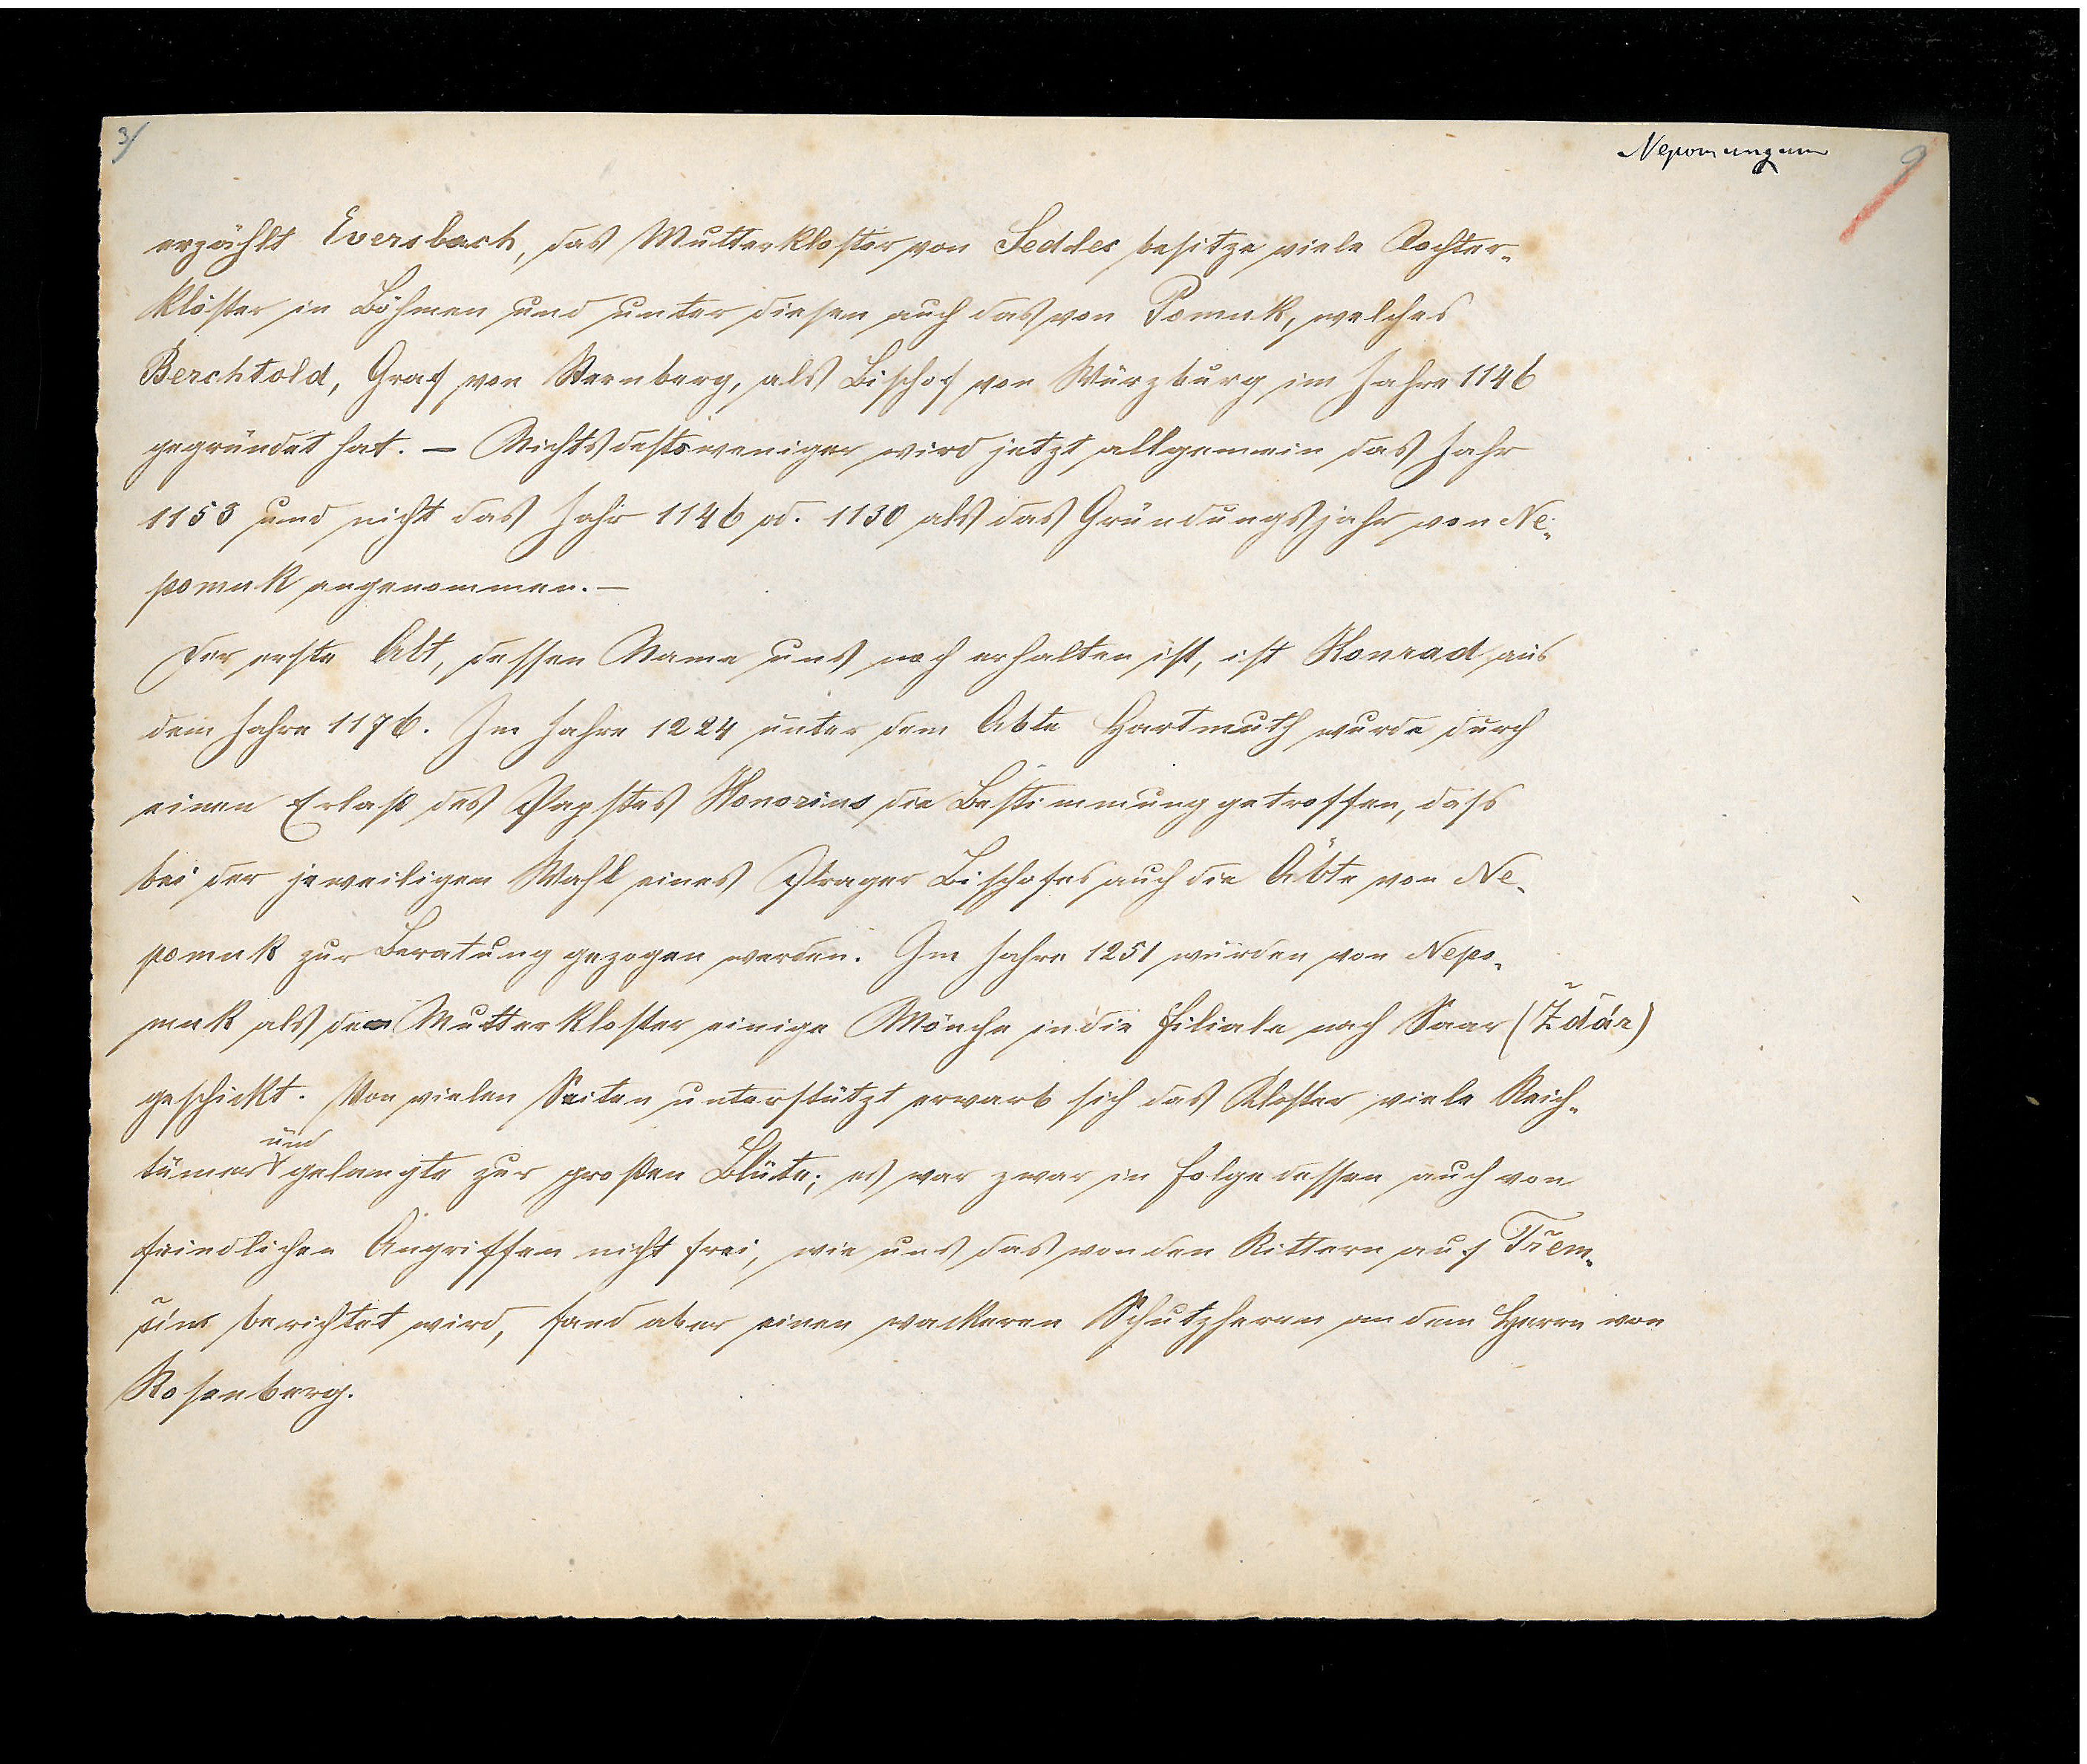 3/
Nepomungum
9
erzählt Eversbach, das Mutterkloster von Seddec besitze viele Tochter-
klöster in Böhmen und unter diesen auch das von Pomuk, welches
Berchtold, Graf von Sternberg, als Bischof von Würzburg im Jahre 1146
gegründet hat. — Nichtsdestoweniger wird jetzt allgemein das Jahr
1153 und nicht das Jahr 1146 od. 1130 als das Gründungsjahr von Ne-
pomuk angenommen. —
Der erste Abt, dessen Name uns noch erhalten ist, ist Konrad aus
dem Jahre 1176. Im Jahre 1224 unter dem Abte Hartmuth wurde durch
einen Erlaß des Papstes Honorius die Bestimmung getroffen, dass
bei der jeweiligen Wahl eines Prager Bischofes auch die Äbte von Ne-
pomuk zur Beratung gezogen werden. Im Jahre 1251 wurden von Nepo-
muk als dem Mutterkloster einige Mönche in die Filiale nach Saar (Ždár)
geschickt. Von vielen Seiten unterstützt erwarb sich das Kloster viele Reich-
tümer und gelangte zur großen Blüte; es war zwar in Folge dessen auch von
feindlichen Angriffen nicht frei, wie uns das von den Rittern auf Třem-
šín berichtet wird, fand aber einen wackeren Schutzherrn an dem Herrn von
Rosenberg.